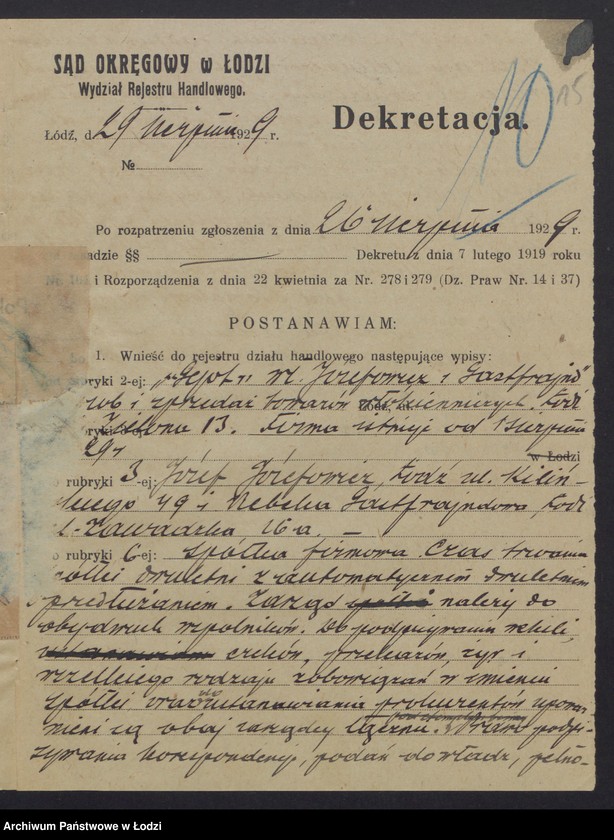 SĄD OKRĘGOWY w ŁODZI
Wydział Rejestru Handlowego.
Łódź, d. 29 sierpnia 1929 r.
Dekretacja.
10
15
№
Po rozpatrzeniu zgłoszenia z dnia 26 sierpnia 1929 r.
adzie §§ Dekretu z dnia 7 lutego 1919 roku
i Rozporządzenia z dnia 22 kwietnia za Nr. 278 i 279 (Dz. Praw Nr. 14 i 37)
POSTANAWIAM:
I. Wnieść do rejestru działu handlowego następujące wpisy:
bryki 2-ej: M. Józefowicz i Gastfrajnd"
i sprzedaż towarów włókienniczych. Łódź
13. Firma istnieje od 1 sierpnia
29 r. w Łodzi
rubryki 3-ej: Józef Józefowicz, Łódź ul. Kiliń-
skiego 49 i Rebeka Gastfrajndowa, Łódź
ul. Zawadzka 16a. —
rubryki 6-ej: Spółka firmowa. Czas trwania
spółki dwuletni z automatycznem dwuletniem
przedłużaniem. Zarząd należy do
obydwuch wspólników. Do podpisywania weksli,
czeków, przekazów, żyr i
wszelkiego rodzaju zobowiązań w imieniu
spółki oraz do ustanawiania prokurentów upoważ-
nieni są obaj zarządcy łącznie. podpi-
sywania korespondencji, podań do władz, pełno-
Archiwum Państwowe w Łodzi